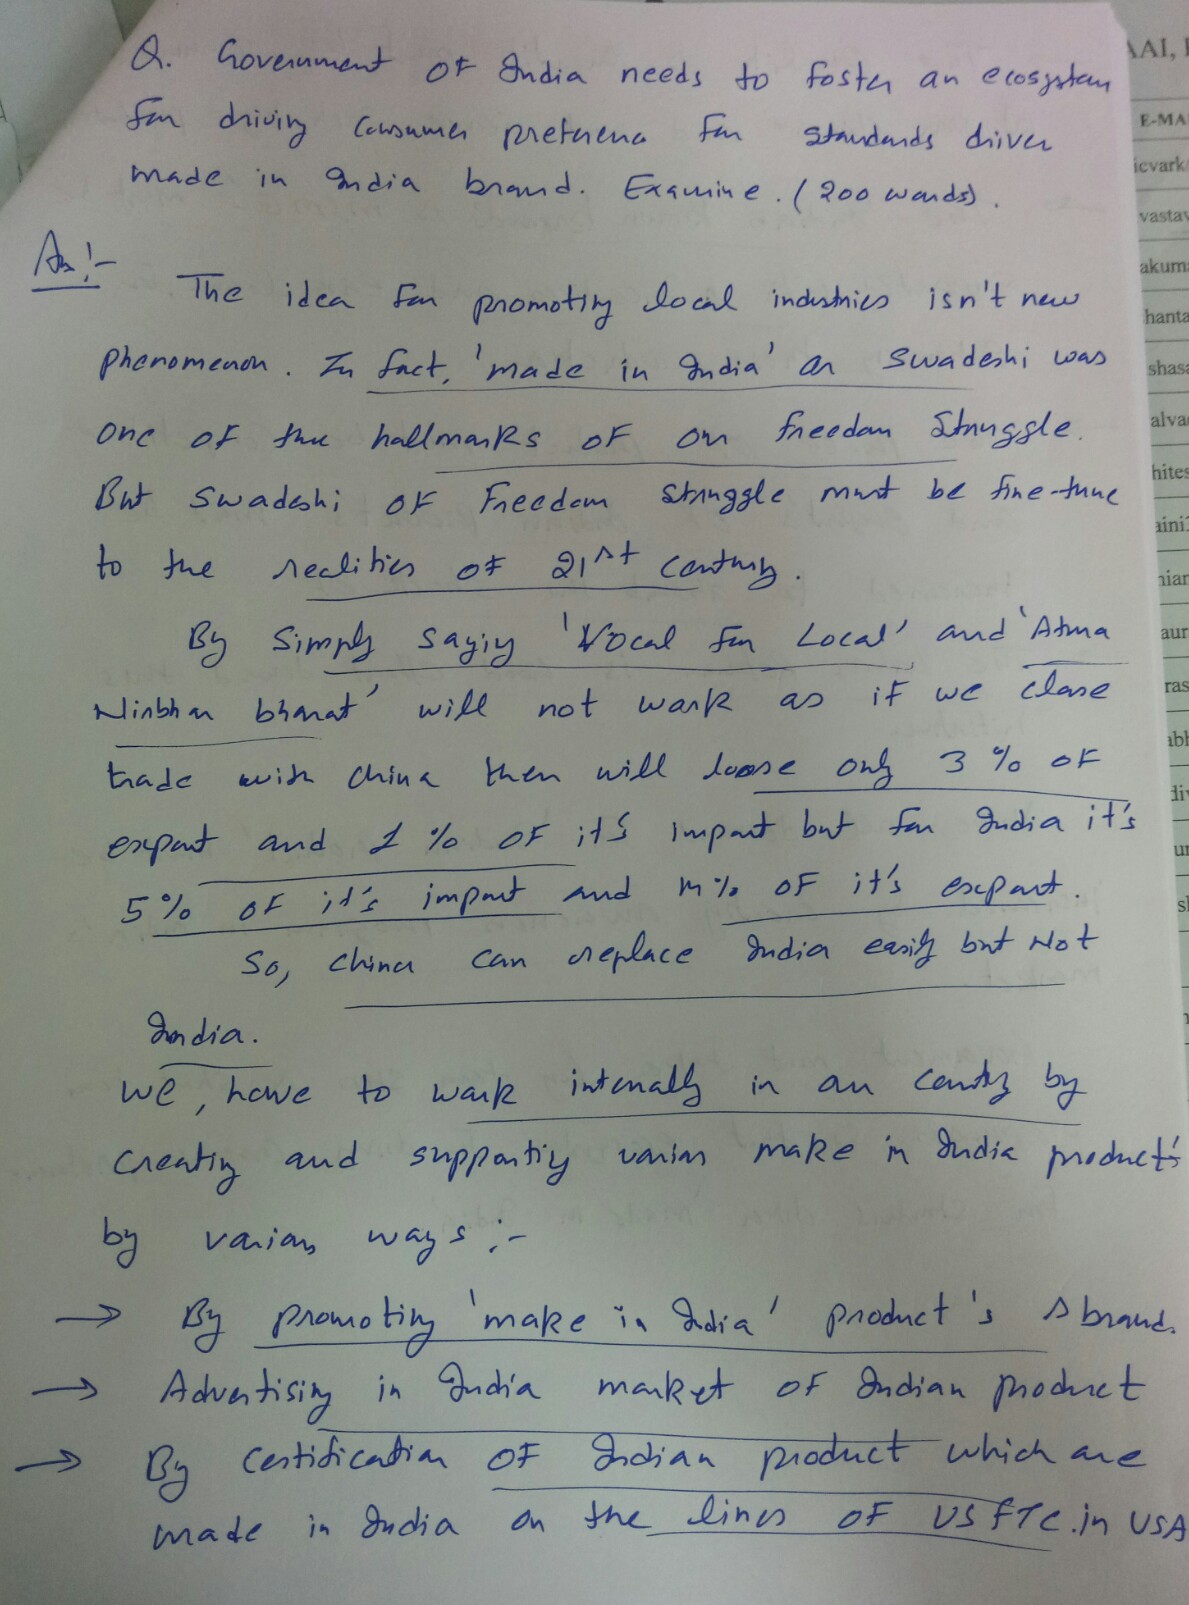 Q. Government of India needs to foster an ecosystem
for driving consumer preference for standards driven
made in India brand. Examine. (200 words).
Ans:-
The idea for promoting local industries isn't new
phenomenon. In fact, 'made in India' or Swadeshi was
one of the hallmarks of our freedom Struggle.
But Swadeshi of Freedom Struggle must be fine-tune
to the realities of 21st century.
By Simply saying 'Vocal for Local' and 'Atma
Nirbhar bharat' will not work as if we close
trade with China then will loose only 3 % of
export and 1 % of it's import but for India it's
5% of it's import and % of it's export.
So, China can replace India easily but Not
India.
We, have to work internally in our country by
creating and supporting various make in India product's
by various ways :-
→ By promoting 'make in India' product's brand.
→ Advertising in India market of Indian product
→ By certification of Indian product which are
made in India on the lines of US FTC in USA
AAI,
E-MA
ievark
vasta
akum
hanta
shasa
alva
hites
aini
nian
aur
ras
abh
di